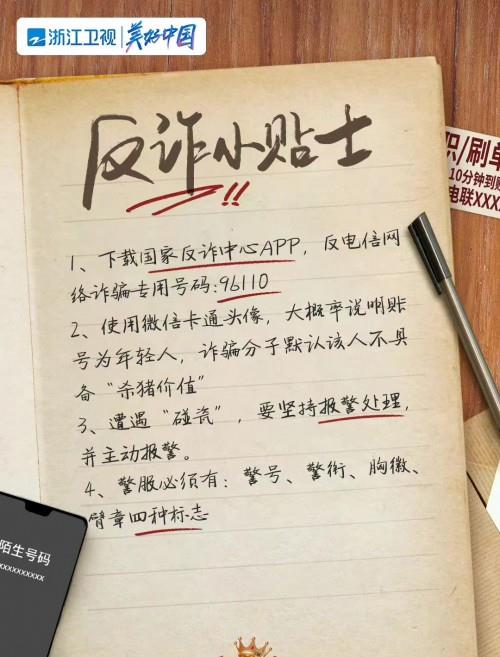 浙江卫视 美好中国
反诈小贴士!!
职/刷单
10分钟到账
电联XXX
1、下载国家反诈中心APP，反电信网
络诈骗专用号码:96110
2、使用微信卡通头像，大概率说明账
号为年轻人，诈骗分子默认该人不具
备“杀猪价值”
3、遭遇“碰瓷”，要坚持报警处理，
并主动报警。
4、警服必须有：警号、警衔、胸徽、
臂章四种标志
陌生号码
XXXXXXXXXXX